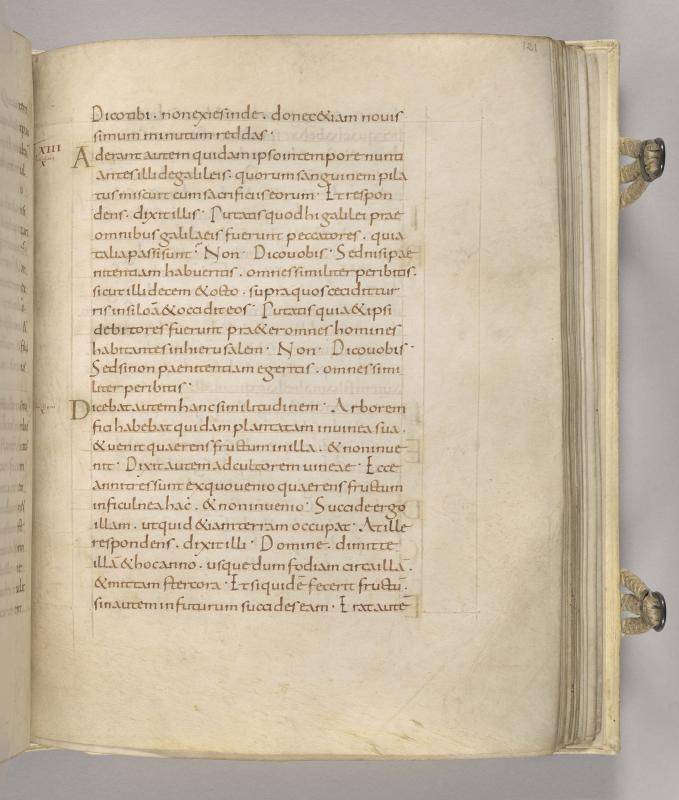 121
Dico tibi . non exies inde . donec &iam novis
simum minutum reddas .
XIII
Aderant autem quidam ipso in tempore nunti
antes illi de galileis . quorum sanguinem pila
tus miscuit cum sacrificiis eorum . Et respon
dens . dixit illis . Putatis quod hi galilei prae
omnibus galilaeis fuerunt peccatores . quia
talia passi sunt . Non . Dico vobis . Sed nisi pae
nitentiam habueritis . omnes similiter peribitis .
sicut illi decem & octo . supra quos cecidit tur
ris in siloā & occidit eos . Putatis quia & ipsi
debitores fuerunt pra&er omnes homines
habitantes in hierusalem . Non . Dico vobis .
Sed si non paenitentiam egeritis . omnes simi
liter peribitis .
Dicebat autem hanc similitudinem . Arborem
fici habebat quidam plantatam in vinea sua .
& venit quaerens fructum in illa . & non inve
nit . Dixit autem ad cultorem vineae . Ecce
anni tres sunt ex quo venio quaerens fructum
in ficulnea hac . & non invenio . Succide ergo
illam . ut quid &iam terram occupat . At ille
respondens . dixit illi . Domine . dimitte
illā & hoc anno . usque dum fodiam circa illā .
& mittam stercora . Et si quidē fecerit fructū .
sin autem in futurum succides eam . Erat autē